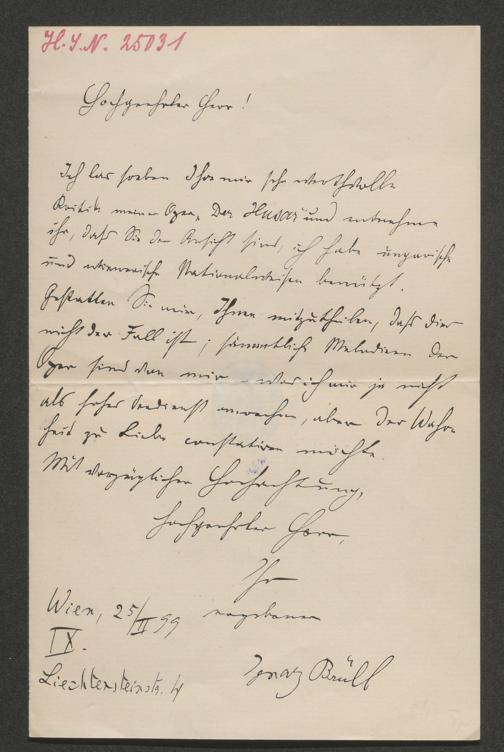 H.I.N. 25031
Hochgeehrter Herr!
Ich las soeben Ihre mir sehr werthvolle
Kritik meiner Oper „Der Husar" und entnehme
ihr, daß Sie der Ansicht sind, ich habe ungarische
und wienerische Nationalweisen benützt.
Gestatten Sie mir, Ihnen mitzutheilen, daß dies
nicht der Fall ist; sämmtliche Melodien der
Oper sind von mir – was ich mir ja nicht
als hohes Verdienst anrechne, aber der Wahr-
heit zu Liebe constatiren möchte.
Mit vorzüglicher Hochachtung,
hochgeehrter Herr,
Ihr
ergebener
Ignaz Brüll
Wien, 25/II 99
IX.
Liechtensteinstr.